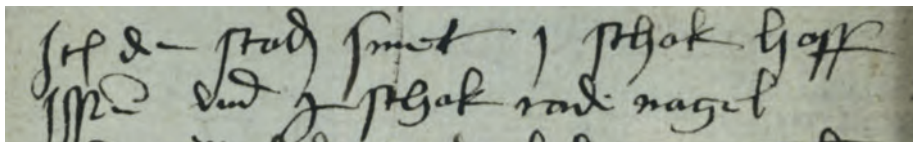 Ite de stadt smet j schok hoff
Issen vnd j schok rade nagel